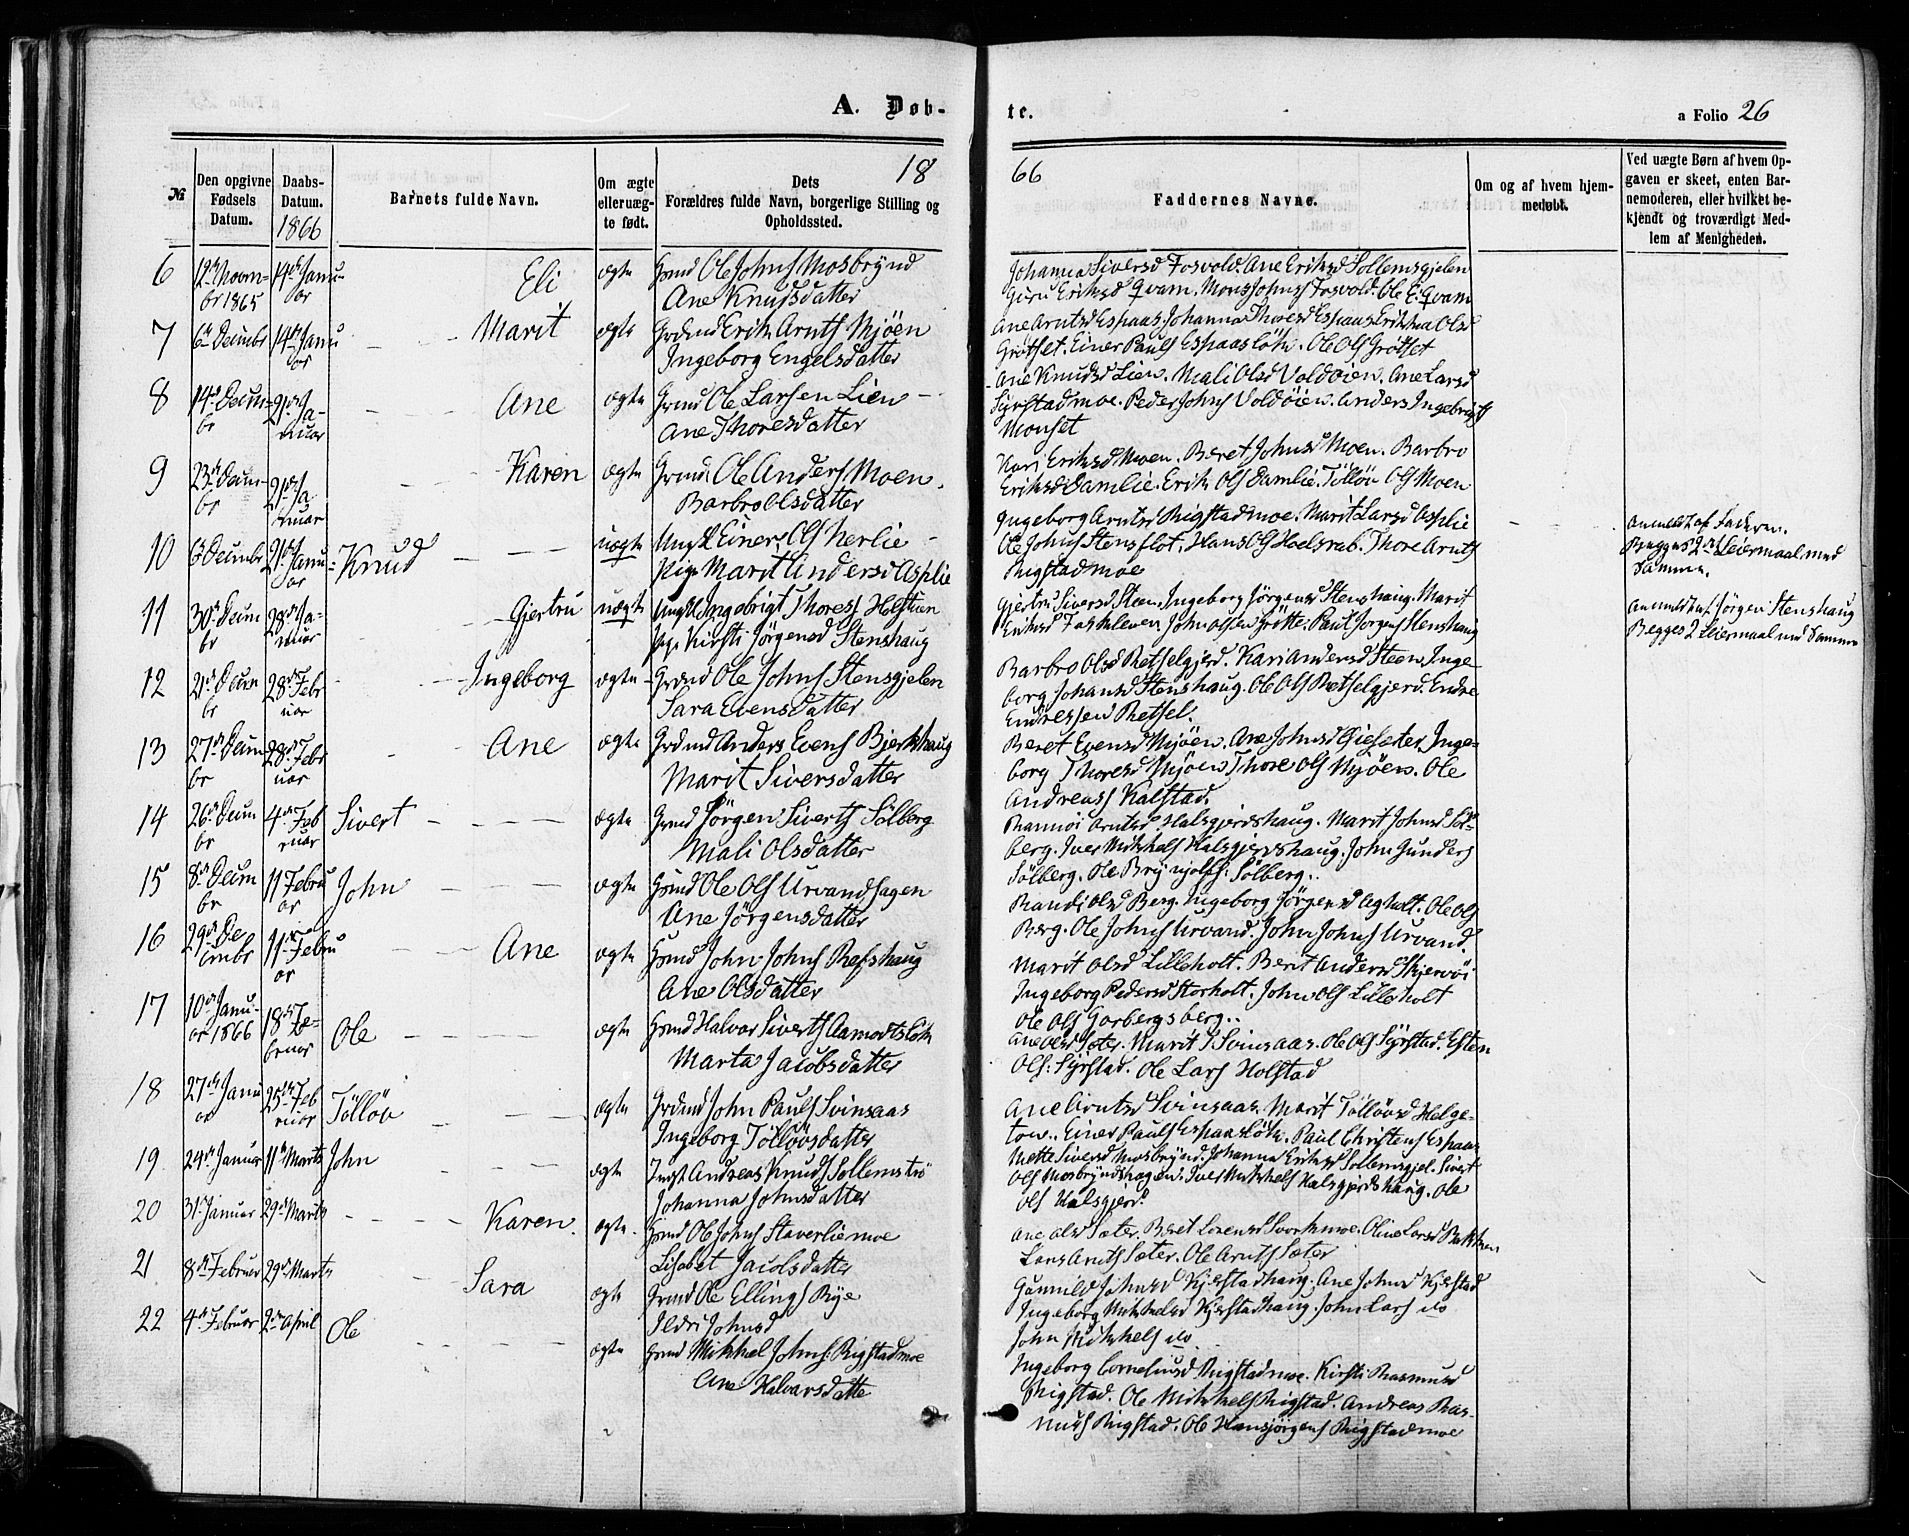 A. Døb-
18
№
Den opgivne Fødsels Datum.
Daabs-Datum. 1866
Barnets fulde Navn.
Om ægte eller uægte født.
Dets Forældres fulde Navn, borgerlige Stilling og Opholdssted.
6 12te Novembr 1865 14de Januar Eli ægte Grmd Ole Johns Mosbrynd
Ane Knudsdatter
7 6te Decembr 14de Januar Marit ægte Grdmd Erik Arnts Mjöen
Ingeborg Engelsdatter
8 14de Decembr 21de Januar Ane ægte Grmd Ole Larsen Lien
Ane Thoresdatter
9 23de Decembr 21de Januar Karen ægte Grmd Ole Anders Moen
Barbro Olsdatter
10 6te Decembr 21de Januar Knud uægte Ungk Einer Ols Nerlie
Pige Marit Andersd Asplie
11 30de Decembr 28de Januar Gjertru uægte Ungk Ingebrigt Thores Holstuen
Pige Kirsti Jörgensd Stenshaug
12 21de Decembr 28de Februar Ingeborg ægte Grmd Ole Johns Stensgjelen
Sara Evensdatter
13 27de Decembr 28de Februar Ane ægte Grdmd Anders Evens Bjerkhaug
Marit Siversdatter
14 26de Decembr 4de Februar Sivert ægte Grmd Jörgen Siverts Sölberg
Mali Olsdatter
15 8de Decembr 11 Februar John ægte Hsmd Ole Ols Urvandhagen
Ane Jörgensdatter
16 29de Decembr 11te Februar Ane ægte Hsmd John Johns Refshaug
Ane Olsdatter
17 10de Januar 1866 18de Februar Ole ægte Hsmd Halvor Siverts Aamotslökk
Marta Jacobsdatter
18 27de Januar 25de Februar Töllöv ægte Grdmd John Pauls Svinsaas
Ingeborg Töllövsdatter
19 24de Januar 11te Marts John ægte Indst Andreas Knuds Sollemströ
Johanna Johnsdatter
20 31te Januar 29de Marts Karen ægte Hsmd Ole Johns Staverliemoe
Lisabet Jacobsdatter
21 8de Februar 29de Marts Sara ægte Grmd Ole Ellings Rye
Ildri Johnsd
22 4de Februar 2den April Ole ægte Hsmd Mikkel Johns Rigstadmoe
Ane Halvarsdatte
te.
a Folio 26
66
Faddernes Navne.
Om og af hvem hjemmedøbt.
Ved uægte Børn af hvem Opgaven er skeet, enten Barnemoderen, eller hvilket bekjendt og troværdigt Medlem af Menigheden.
Johanna Siversd Fosvold. Ane Eriksd Sollemsgjelen
Guru Eriksd Qvam. Mons Johns Fosvold. Ole E. Qvam
Ane Arntsd Espaas. Johanna Thoresd Espaas. Erikka Olsd
Grötset. Einer Pauls Espaaslökk. Ole Ols Grötset
Ane Knudsd Lien. Mali Olsd Voldöien. Ane Larsd
Syrstadmoe. Peder Johns Voldöien. Anders Ingebrigts
Monset
Kari Eriksd Moen. Beret Johnsd Moen. Barbro
Eriksd Damlie. Erik Ols Damlie. Töllöv Ols Moen
Ingeborg Arntsd Rigstadmoe. Marit Larsd Asplie
Ole Johns Stensflot. Hans Ols Hoelsrab. Thore Arnts
Rigstadmoe
Anmeldt af Faderen.
Begges 2det Leiermaal med
Samme.
Gjertru Siversd Steen. Ingeborg Jörgensd Stenshaug. Marit
Eriksd Foskleven. John Olsen Grötte. Paul Jörgens Stenshaug
Anmeldt af Jörgen Stenshaug
Begges 2 Leiermaal med Samme
Barbro Olsd Retselgjerd. Kari Andersd Steen. Inge-
borg Johansd Stenshaug. Ole Ols Retselgjerd. Endre
Endressen Retsel.
Beret Evensd Mjöen. Ane Johnsd Gisæter. Inge-
borg Thoresd Mjöen. Thore Ols Mjöen. Ole
Andreass Kalstad.
Rannöi Arntsd Halsgjerdshaug. Marit Johnsd Söl-
berg. Iver Mikkels Halsgjerdshaug. John Gunders
Sölberg. Ole Brynjolfs: Sölberg.
Randi Olsd Berg. Ingeborg Jörgensd Agholt. Ole Ols
Berg. Ole Johns Urvand. John Johns Urvand.
Marit Olsd Lilleholt. Berit Andersd Skjervöi
Ingeborg Pedersd Storholt. John Ols Lilleholt
Ole Ols Gorbergsberg.
Ane Olsd Sæter. Marit J Svinsaas. Ole Ols Syrstad. Esten
Ols: Syrstad. Ole Lars Holstad
Ane Arntsd Svinsaas. Marit Töllövsd Helge-
ton. Einer Pauls Espaaslökk. Paul Christens Espaas
Mette Siversd Mosbrynd. Johanna Eriksd Sollemsgjel. Sivert
Ols Mosbryndhagen. Iver Mikkels Halsgjerdshaug. Ole
Ols Halsgjerd.
Ane Olsd Sæter. Beret Lorensd Svorkmoe. Oline Larsd Bakken
Lars Arnts Sæter. Ole Arnts Sæter
Gunnild Johnsd Kjerstadhaug. Ane Johnsd Kjerstad
Ingeborg Mikkelsd Kjerstadhaug. John Lars do
John Mikkels do
Ingeborg Corneliusd Rigstadmoe. Kirsti Rasmusd
Rigstad. Ole Mikkels Rigstad. Andreas Ras-
mus Rigstad. Ole Hansjörgens Rigstadmoe